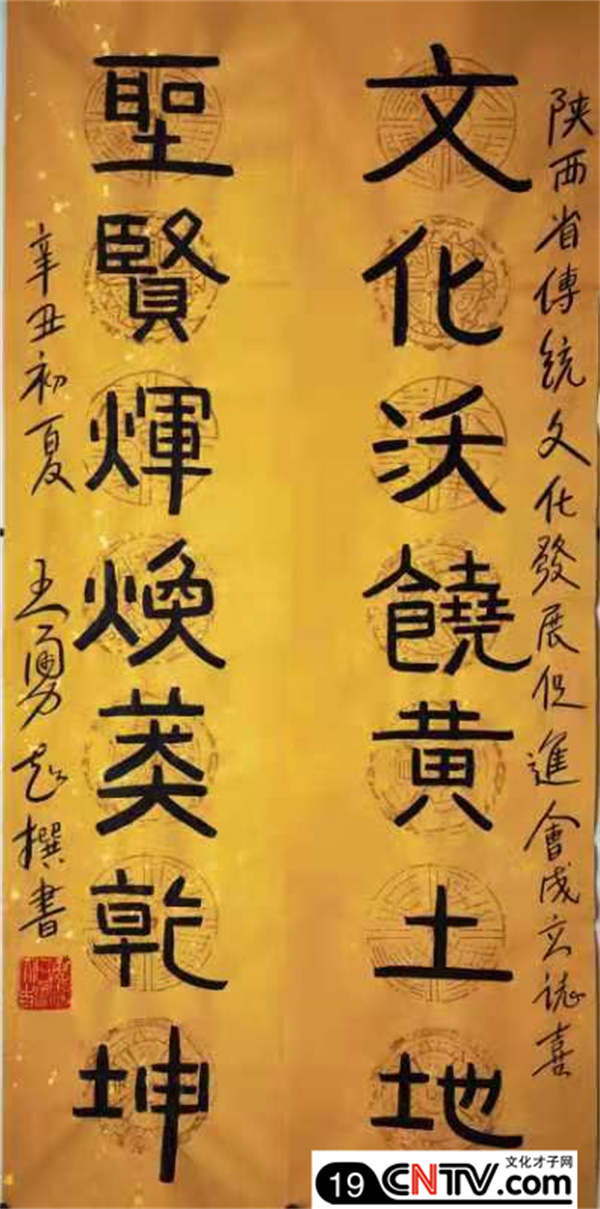 陕西省傳統文化發展促進會成立誌喜
文化沃饒黄土地
聖賢煇煥美乾坤
辛丑初夏 王勇超撰書
19 CNTV.com
文化才子网